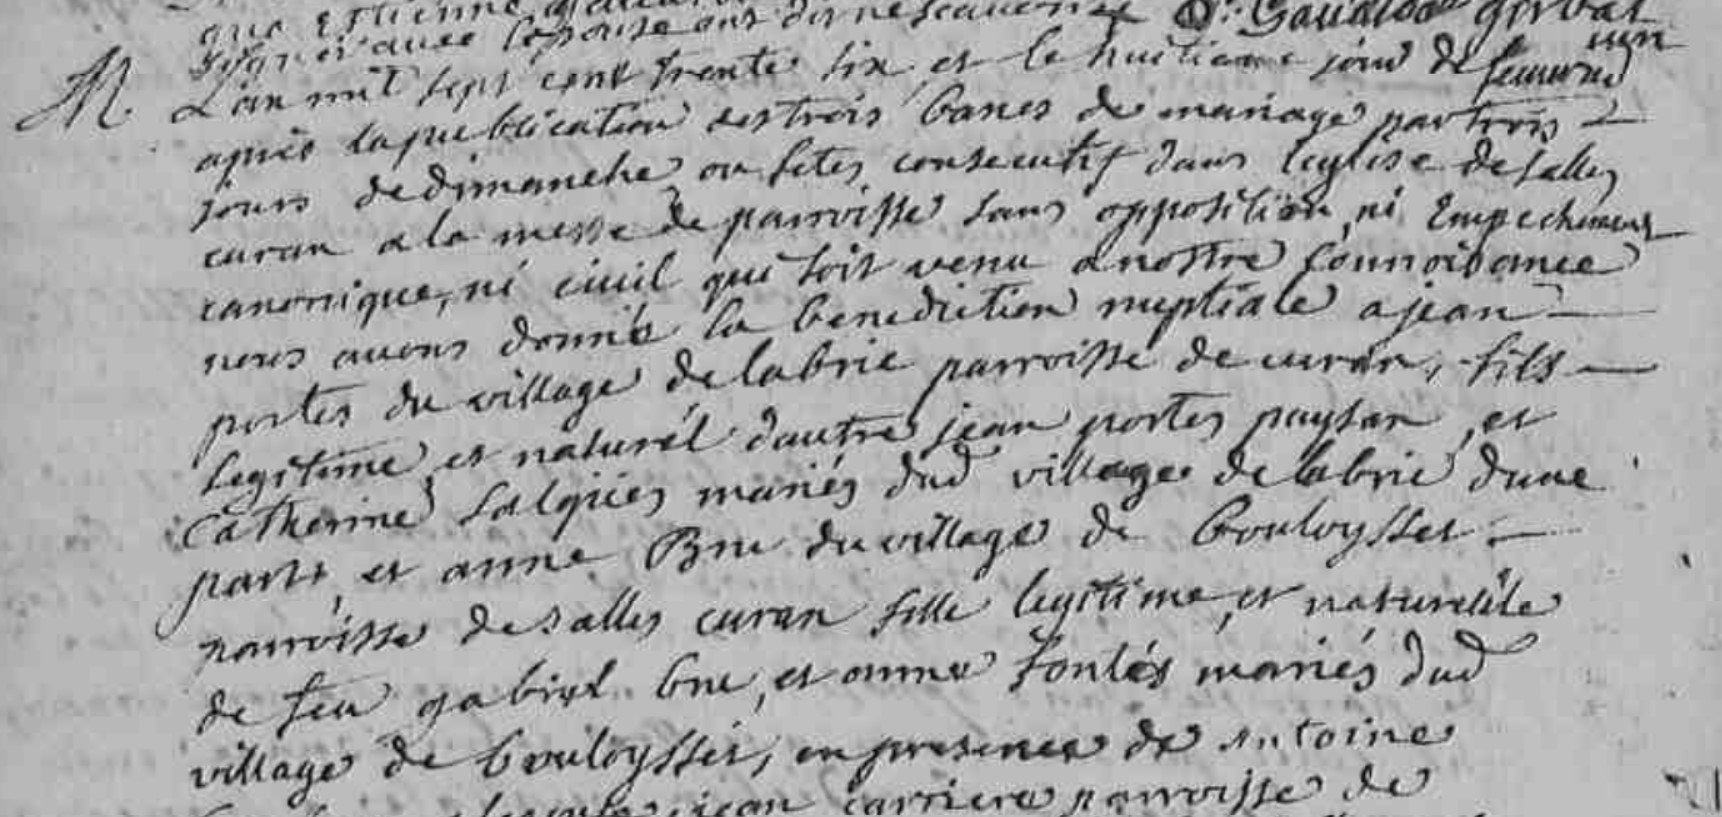 que estienne
espouse ont
M. L'an mil sept cent trente six et le huitieme jour de feuvrier
apres la publication des trois bancs de mariage par trois
jours de dimanche ou fetes consecutif dans leglise de salles
curan a la messe de parroisse sans opposition, ni Empechement
canonique, ni civil que soit venu a nostre connoisance
nous avons donné la benediction nuptiale a jean
portes du village de labrie parroisse de curan, fils
legitime et naturel dautre jean portes paysan, et
Catherine salgues mariés dud village de labrie dune
part, et anne Bru du village de bouloysset
parroisse de salles curan fille legitime, et naturelle
de feu gabriel bru, et anne fontés mariés dud
village de bouloysset, en presence de antoine
jean carriere parroisse de